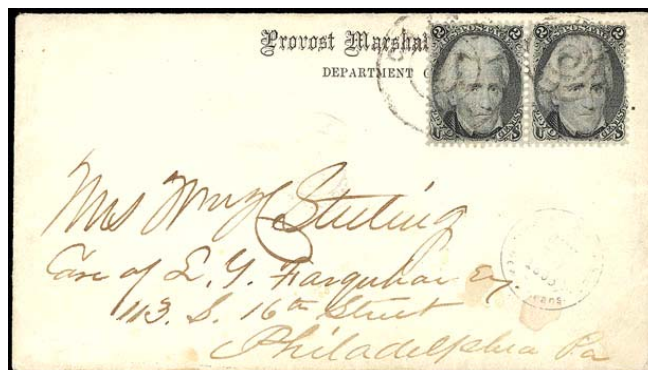 Provost Marshal
DEPARTMENT
U.S. POSTAGE
2 2
2 2
Mrs Wm Sterling
Care of L. G. Farquhar Esq
113. S. 16th Street
Philadelphia Pa